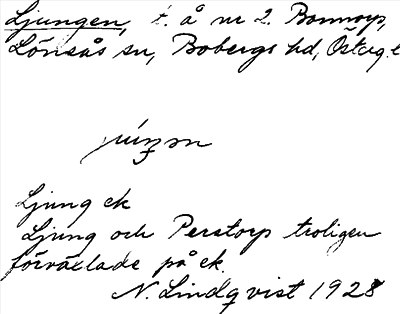 Ljungen, t. å nr 2. Bonnorp,
Lönsås sn, Bobergs hd, Östergt
Ljung ek
Ljung och Perstorp troligen
förväxlade på ek.
N. Lindqvist 1928